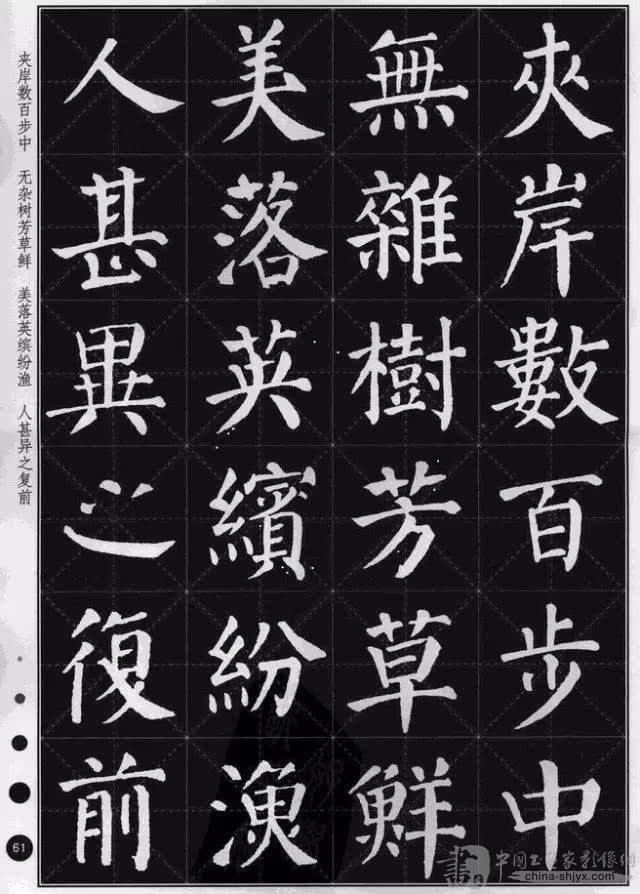 夾岸數百步中
無雜樹芳草鮮
美落英繽紛漁
人甚異之復前
夹岸数百步中 无杂树芳草鲜 美落英缤纷渔 人甚异之复前
61
書 中国书画家影像網
china-shjyx.com